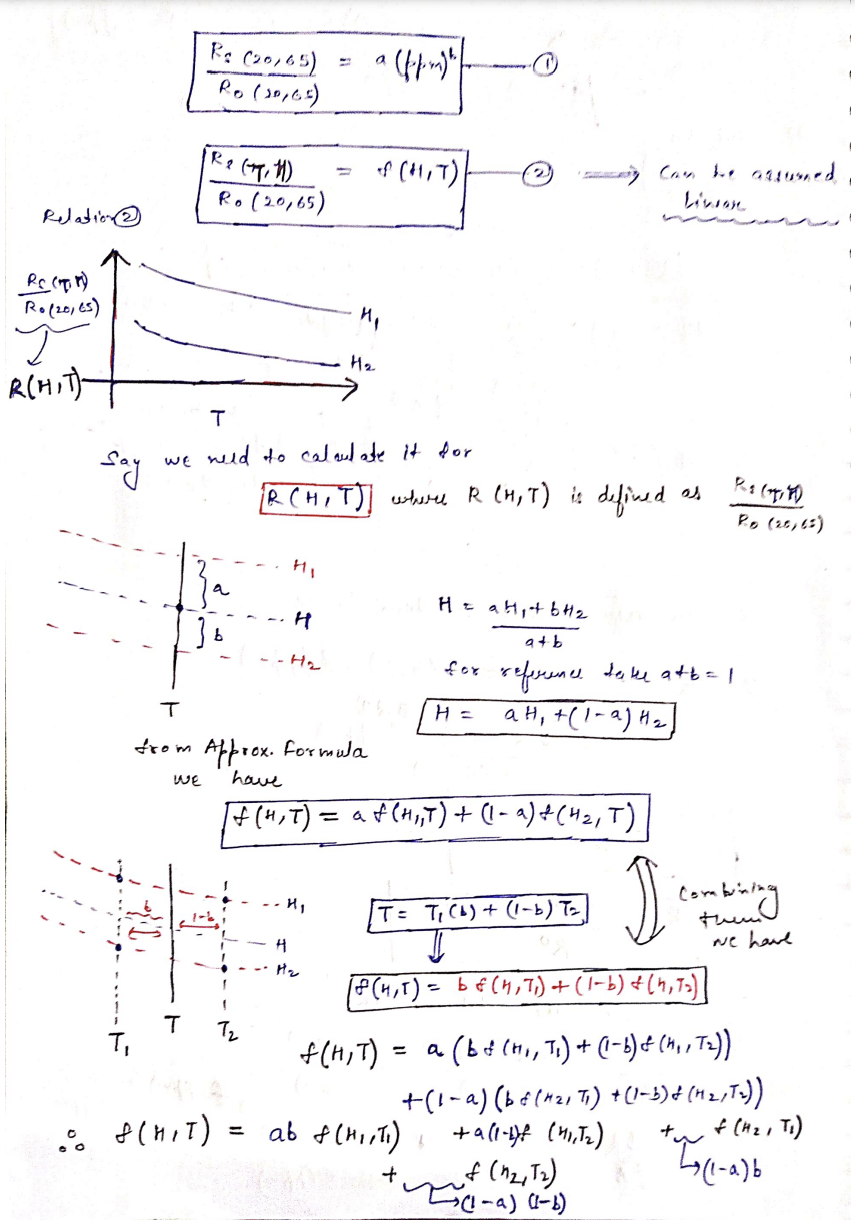 Rs (20,65) / Ro (20,65) = a (ppm)^b — ①
Rs (T, H) / Ro (20,65) = f (H,T) — ② ⟹ Can be assumed
linear
Relation ②
Rs (T, H) / Ro (20,65)
H₁
H₂
R(H,T)
T
Say we need to calculate it for
R(H,T) where R (H,T) is defined as Rs (T, H) / Ro (20,65)
H₁
a
H
b
H₂
T
H = aH₁ + bH₂ / a+b
for reference take a+b = 1
H = aH₁ + (1-a) H₂
from Approx. formula
we have
f(H,T) = a f(H₁,T) + (1-a) f(H₂, T)
b 1-b
H₁
H
H₂
T₁ T T₂
T = T₁(b) + (1-b) T₂
⇓
f(H,T) = b f(H,T₁) + (1-b) f(H,T₂)
Combining
them
we have
f(H,T) = a (b f (H₁, T₁) + (1-b) f (H₁, T₂))
+(1-a) (b f (H₂, T₁) + (1-b) f (H₂,T₂))
∴ f(H,T) = ab f(H₁,T₁) + a(1-b)f (H₁,T₂) + f (H₂, T₁)
(1-a)b
+ f (H₂,T₂)
(1-a) (1-b)